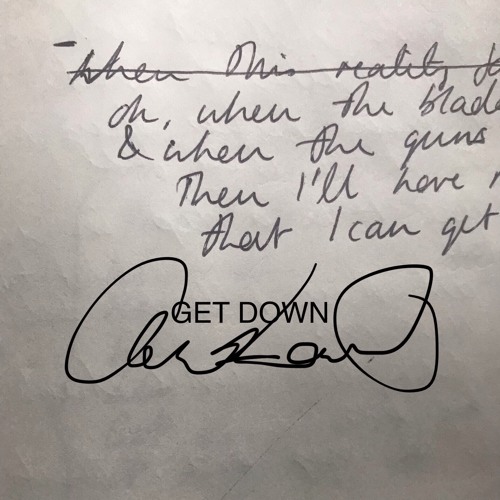 - When this reality
oh, when the blade
& when the guns
Then I'll have
that I can get
GET DOWN